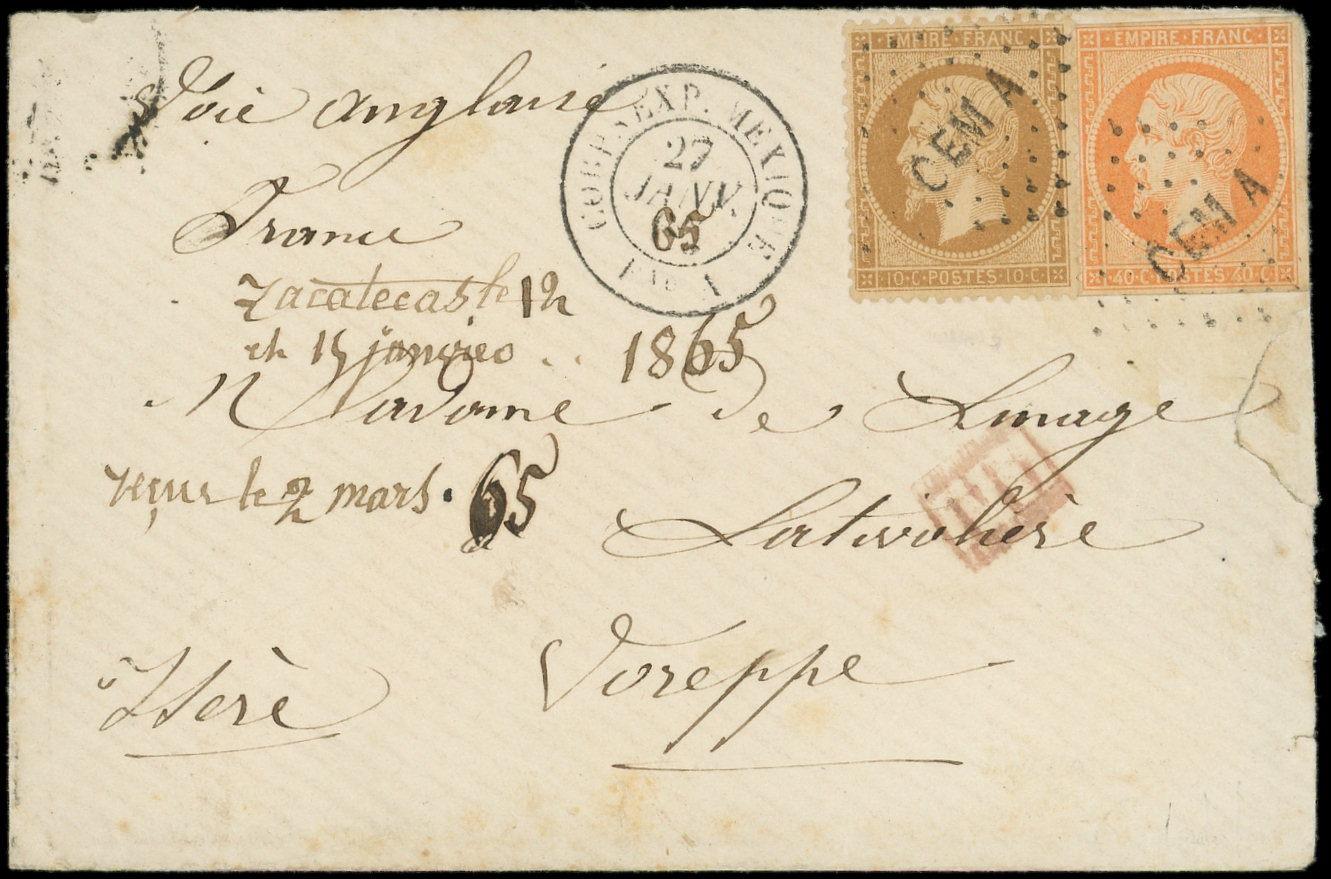 Voie Anglaise
France
Zacatecas le 12
et 15 janvier 1865
Madame de Linage
reçue le 2 mars. 65
Voreppe
Isère
CORPS EXP. MEXIQUE
27
JANV.
65
EMPIRE FRANC
10 C POSTES 10 C
CEM A
EMPIRE FRANC
40 C POSTES 40 C
CEM A